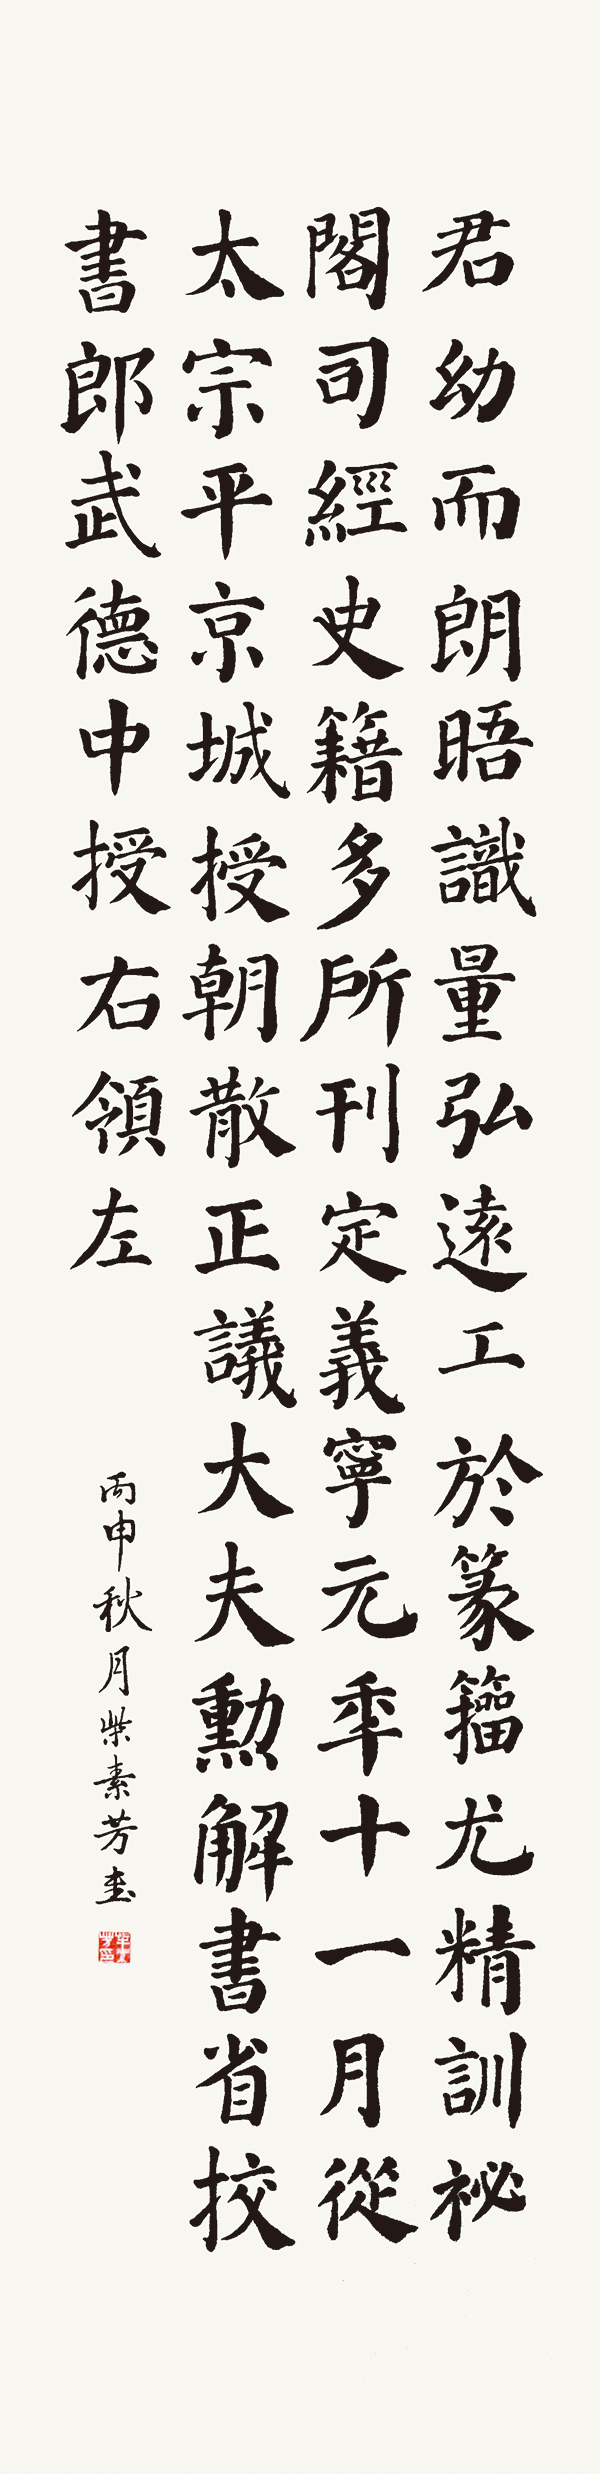 君幼而朗晤識量弘遠工於篆籀尤精訓祕
閣司經史籍多所刊定義寧元年十一月從
太宗平京城授朝散正議大夫勳解書省挍
書郎武德中授右領左
丙申秋月柴素芳書